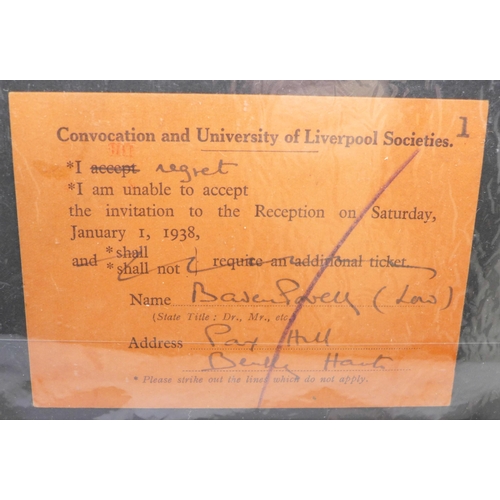 1
Convocation and University of Liverpool Societies.
*I accept regret
*I am unable to accept
the invitation to the Reception on Saturday,
January 1, 1938,
and *shall
*shall not } require an additional ticket.
Name BadenPowell (Lord)
(State Title: Dr., Mr., etc.)
Address Pax Hill
Bentley Hants
* Please strike out the lines which do not apply.